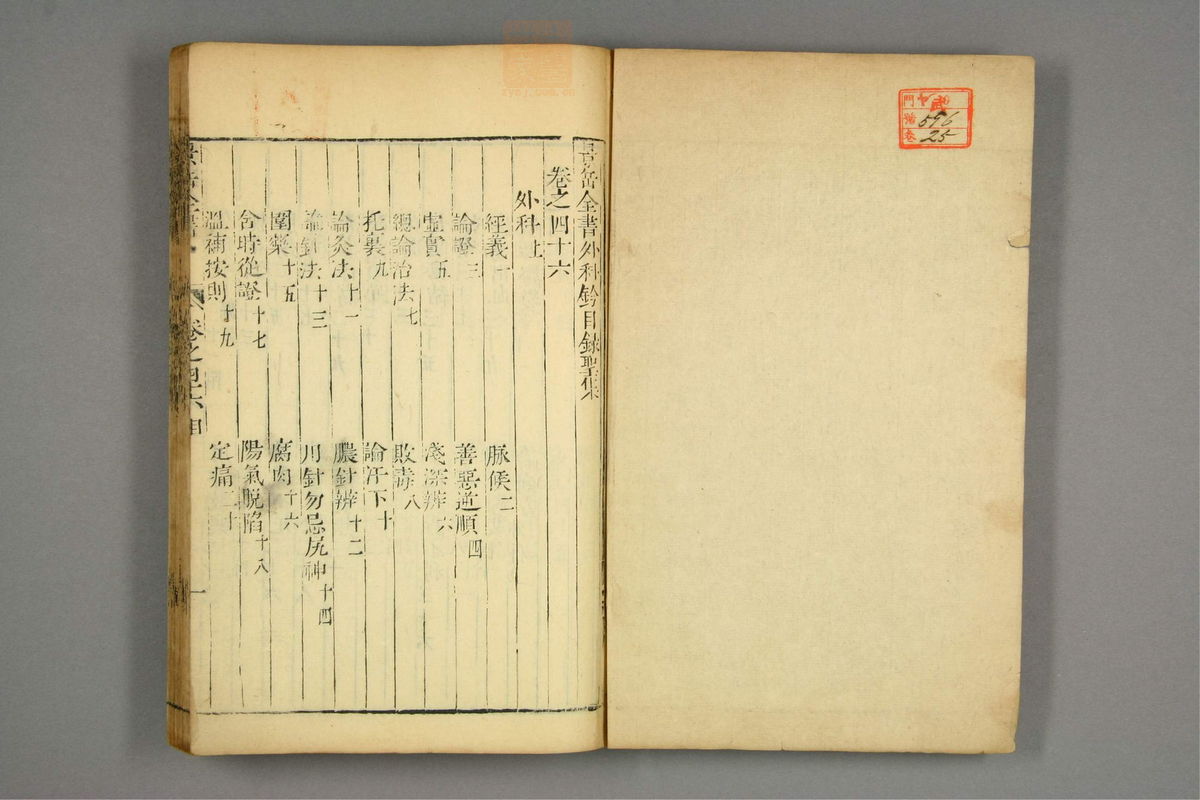 景岳全書外科鈐目錄聖集
卷之四十六
外科上
經義一 脉候二
論證三 善惡逆順四
虛實五 淺深辨六
總論治法七 敗毒八
托裏九 論汗下十
論灸法十一 膿針辨十二
論針法十三 用針勿忌尻神十四
圍藥十五 腐肉十六
舍時從證十七 陽氣脫陷十八
溫補按則十九 定痛二十
卷之四十六目
一
門
號 596
卷 25